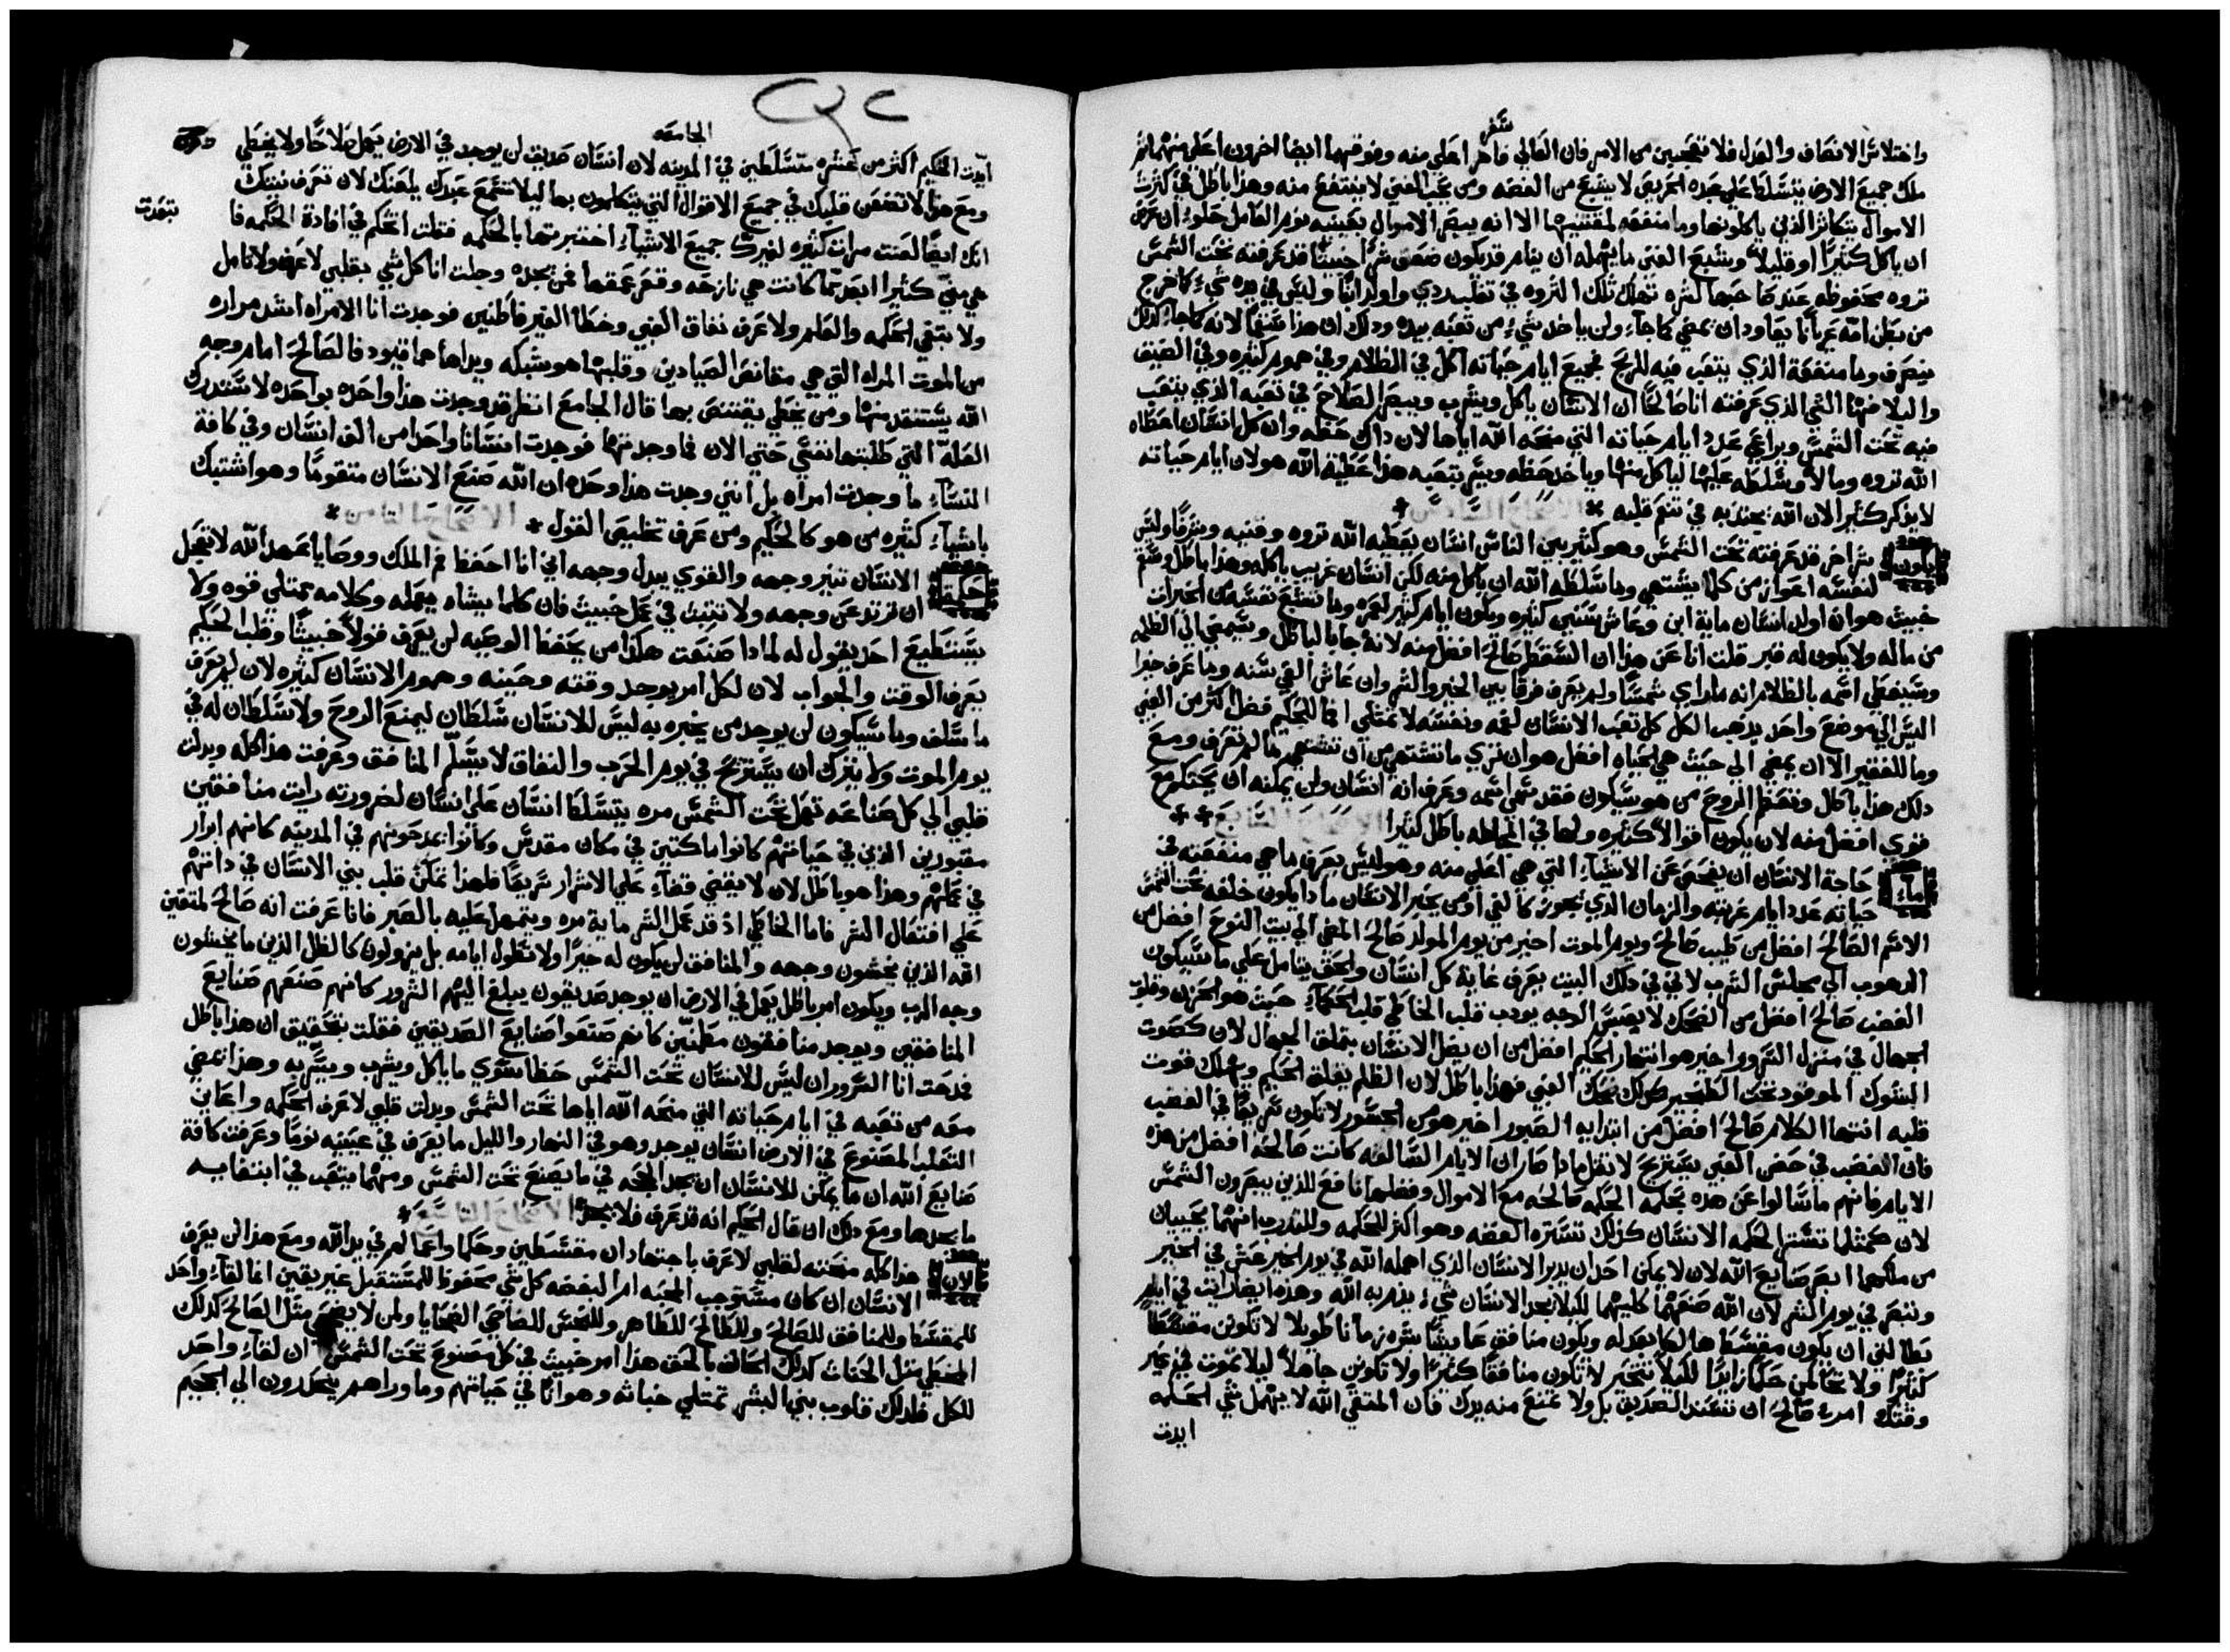 سفر
واختلاس الانصاف والعدل فلا تتعجبن من الامر فان العالي فاهر اعلي منه وفوقهما ايضا اخرون اعلي منهما ثم
ملك جميع الارض يتسلط علي عبده الحريص لا يشبع من الفضه ومن يحب الغني لا ينتفع منه وهذا باطل في كثرت
الاموال تتكاثر الذين ياكلونها وما منفعه لمقتنيها الا انه يبصر الاموال بعينيه نوم العامل حلو ان عرض
ان ياكل كثيرًا او قليلاً وشبع الغني ما يمهله ان ينام قد يكون ضعف شر اخبيثًا قد عرفته تحت الشمس
ثروه محفوظه عند صاحبها لشره تهلك تلك الثروه في تقلب ردي واولد ابنًا وليس في يده شي كما خرج
من بطن امه عريانًا يعاود ان يمضي كما جاء ولن ياخد شيء من تعبه بيده ودلك ان هذا سقم لانه كما جاء كدلك
ينصرف وما منفعة الذي يتعب فيه للريح فجميع ايام حياته اكل في الظلام وفي هموم كثيره وفي الضيق
والبلا فهدا الشي الذي عرفته انا صالحًا ان الانسان ياكل ويشرب ويبصر الصلاح في تعبه الذي يتعب
فيه تحت الشمس ويراعي عدد ايام حياته التي منحه الله اياها لان داك حظه وان كل انسان اعطاه
الله ثروه ومالاً وسلطه عليها لياكل منها وياخد حظه ويسر بتعبه هذا عطية الله هو لان ايام حياته
لا يذكر كثيرا لان الله يجذبه في تنعم قلبه
يكون شر اخر قد عرفته تحت الشمس وهو كثير بين الناس انسان يعطيه الله ثروه وقنيه وشرفًا وليس
لنفسه اعواز من كلما يشتهي وما سلطه الله ان ياكل منه لكن انسان غريب ياكله وهذا باطل وسقم
خبيث هو ان اولد انسان ماية ابن وعاش سنين كثيره ويكون ايام كثير لعمره وما تشبع نفسه من الخيرات
من ماله ولا يكون له قبر قلت انا عن هذا ان السقط صالح افضل منه لانه جا بالباطل ويمضي الي الظلمه
وسيغطي اسمه بالظلام انه ما راي شمسًا ولم يعرف فرقًا بين الخير والشر وان عاش الفي سنه وما عرف خيرا
اليس الي موضع واحد يدهب الكل كل تعب الانسان لفمه ونفسه لا تمتلي انما للحكيم فضل اكثر من الغبي
وما للفقير الا ان يمضي الي حيث هي الحياه افضل هو ان تري ما تشتهي من ان تشتهي ما لم تعرف ومع
دلك هذا باطل وتعنط الروح من هو سيكون فقد سمي اسمه وعرف انه انسان ولن يمكنه ان يحتكم مع
قوي افضل منه لان يكون اقوالاً كثيره ولها في المخاطبه باطل كثيرا
ما حاجة الانسان ان يفحص عن الاشياء التي هي اعلي منه وهو ليس يعرف ما هي منفعته في
حياته عدد ايام غربته والزمان الذي يجوز كالفي او من يخبر الانسان مادا يكون خلفه تحت الشمس
الاسم الصالح افضل من طيب صالح ويوم الموت اخير من يوم المولد صالح المضي الي بيت النوح افضل من
الدهوب الي مجلس الشرب لاني في دلك البيت يعرف غاية كل انسان والحي يتامل علي ما سيكون
الغضب صالح افضل من الضحك لا بعبس الوجه يودب قلب الخاطي قلب الحكماء حيث هو الحزن وقلوب
الجهال في منزل السرور اخير هو انتهار الحكيم افضل من ان يضل الانسان بتملق الجهال لان كصوت
الشوك الموقود تحت الطنجير كدلك ضحك الغبي فهذا باطل لان الظلم يقلق الحكيم ويهلك قوت
قلبه انتها الكلام صالح افضل من ابتدايه الصبور اخير هو من الجسور لا تكون سريعًا في الغضب
فان الغضب في حضن الغبي يستريح لا تقل مادا صار ان الايام السالفه كانت صالحة افضل من هذه
الايام فانهم ما سالوا عن هده بحكمه الحكمه صالحه مع الاموال وفضلها نافع للذين يبصرون الشمس
لان كمثلما تستر الحكمه الانسان كذلك تستره الفضه وهو اكثر للحكمه وللتدرب انهما يحييان
من ملكهما ابصر صنايع الله لان لا يمكن احد ان يدبر الانسان الذي اهمله الله في يوم الخير عش في الخير
وتبصر في يوم الشر لان الله صنعهما كليهما لكيلا يجد الانسان شيء يذمر به الله وهذه ايضا رايت في ايام
بطالتي ان يكون مقسطا هالكا بعدله ويكون منافق عايشًا بشره زمانا طويلا لا تكونن مقسطا
كثيرًا ولا تتحالمن حكمًا زايدًا لكيلا تتحير لا تكون منافقًا كثيرًا ولا تكونن جاهلاً ليلا تموت في غير
وقتك امرء صالح ان تسند الصديق بل ولا تمنع منه يدك فان المتقي الله لا يهمل شي الحكمه
ايدت
الجامعه
ايدت الحكيم اكثر من عشره متسلطين في المدينه لان انسان صديق لن يوجد في الارض يعمل صلاحًا ولا يخطي
ومع هذا لا تضعن قلبك في جميع الاقوال التي يتكلمون بها ليلا تسمع عبدك يلعنك لان تعرف نيتك
انك ايضًا لعنت مرات كثيره لغيرك جميع الاشياء اختبرتها بالحكمه فقلت اتحكم في افادة الحكمه فا
تبعدت
هي مني كثيرا ابعد مما كانت هي نازحه وقعر عمقها فمن يجده وجلت انا كل شي بقلبي لاعرف ولاتامل
ولا بتغي الحكمه والعلم ولاعرف نفاق الغبي وخطا الغير فاطنين فوجدت انا الامراه اشد مراره
من الموت المراه التي هي مقانص الصيادين وقلبها هو شبكه ويداها هما قيود فالصالح امام وجه
الله يستنقد منها ومن يخطي يقتنص بها قال الجامع انظر قد وجدت هذا واحده بواحده لاستدرك
العلة التي طلبتها نفسي حتي الان فما وجدتها فوجدت انسانا واحدا من الف انسان وفي كافة
النساء ما وجدت امراه بل انني وجدت هذا وحده ان الله صنع الانسان متقومًا وهو اشتبك
باشياء كثيره من هو كالحكيم ومن عرف تخليص القول
حكمة الانسان تنير وجهه والقوي يبدل وجهه اني انا احفظ فم الملك ووصايا عهد الله لا تعجل
ان ترتد عن وجهه ولا تتثبت في عمل خبيث فان كلما يشاه يعمله وكلامه ممتلي قوه ولا
يستطيع احد يقول له لمادا صنعت هكذا من يحفظ الوصيه لن يعرف قولاً خبيثًا وقلب الحكيم
يعرف الوقت والجواب لان لكل امر يوجد وقته وحينه وهموم الانسان كثيره لان لم يعرف
ما سلف وما سيكون لن يوجد من يخبره به ليس للانسان سلطان ليمنع الروح ولا سلطان له في
يوم الموت ولا يترك ان يستريح في يوم الحرب والنفاق لا يسلم المنافق وعرفت هذا كله وبدلت
قلبي الي كل صناعه تعمل تحت الشمس مره يتسلط انسان علي انسان لضرورته رايت منافقين
مقبورين الذين في حياتهم كانوا ماكثين في مكان مقدس وكانوا يمدحونهم في المدينه كانهم ابرار
في عملهم وهذا هو باطل لان لا يقضي قضاء علي الاشرار سريعًا فلهذا تمكن قلب بني الانسان في داتهم
علي افتعال الشر فاما الخاطي اذ قد عمل الشر ماية مره ويتمهل عليه بالصبر فانا عرفت انه صالح لمتقين
الله الذين يخشون وجهه والمنافق لن يكون له خيرًا ولا تطول ايامه بل يزولون كالظل الذين ما يخشون
وجه الرب ويكون امر باطل يعمل في الارض ان يوجد صديقون يبلغ اليهم الشرور كانهم صنعهم صنايع
المنافقين ويوجد منافقون مطمنين كانهم صنعوا صنايع الصديقين فقلت بتحقيق ان هذا باطل
فمدحت انا السرور ان ليس للانسان تحت الشمس حظا سوي ما ياكل ويشرب ويسر به وهذا يمضي
معه من تعبه في ايام حياته التي منحه الله اياها تحت الشمس وبدلت قلبي لاعرف الحكمه واعاين
التقلب المصنوع في الارض انسان يوجد وهو في النهار والليل ما يعرف في عينيه نومًا وعرفت كافة
صنايع الله ان ما يمكن للانسان ان يجد الحجه في ما يصنع تحت الشمس ومهما يتعب في ابتغايه
ما يجدها ومع دلك ان قال الحكيم انه قد عرف فلا يجد
لان هدا كله منحته لقلبي لاعرف باجتهاد ان مقسطين وحكما واعمالهم في يد الله ومع هذا لن يعرف
الانسان ان كان مستوجب المحبه ام البغضه كل شي محفوظ للمستقبل غير يقين انما لقاء واحد
للمقسط وللمنافق للصالح وللطالح للطاهر وللنجس للضاحي الضحايا ولمن لا يضحي مثل الصالح كدلك
المخطي مثل الحناث كدلك الحالف بالحق هذا امر خبيث في كل مصنوع تحت الشمس ان لقاء واحد
للكل فلدلك قلوب بني البشر تمتلي خباثه وهوانًا في حياتهم وما وراهم ينحدرون الي الجحيم